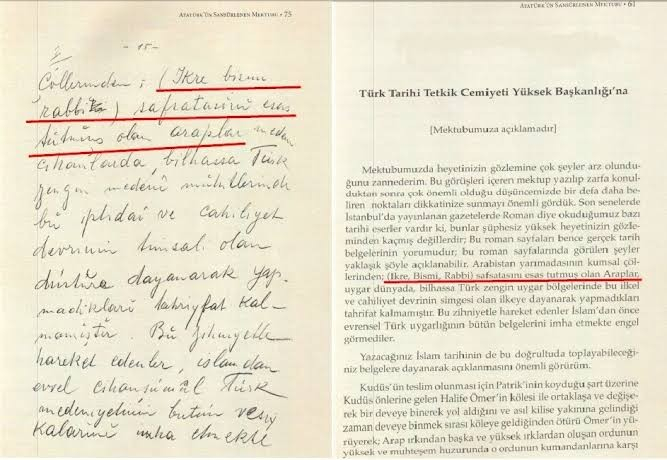 ATATÜRK'ÜN SANSÜRLENEN MEKTUBU • 75
- 15 -
Çöllerinden; (İkre bismi
rabbik) safsatasını esas
tutmuş olan araplar meden
cihanlarda, bilhassa Türk
zengin medenî muhitlerinde
bu iptidaî ve cahiliyet
devrinin timsali olan
düstûra dayanarak yap-
madıkları tahrifat kal-
mamıştır. Bu zihniyetle
hareket edenler, islâmdan
evvel cihanşümûl Türk
medeniyetinin bütün vesi-
kalarını imha etmekte
ATATÜRK'ÜN SANSÜRLENEN MEKTUBU • 61
Türk Tarihi Tetkik Cemiyeti Yüksek Başkanlığı'na
[Mektubumuza açıklamadır]
Mektubumuzda heyetinizin gözlemine çok şeyler arz olundu-
ğunu zannederim. Bu görüşleri içeren mektup yazılıp zarfa konul-
duktan sonra çok önemli olduğu düşüncemizde bir defa daha be-
liren noktaları dikkatinize sunmayı önemli gördük. Son senelerde
İstanbul'da yayınlanan gazetelerde Roman diye okuduğumuz bazı
tarihi eserler vardır ki, bunlar şüphesiz yüksek heyetinizin gözle-
minden kaçmış değillerdir; Bu roman sayfaları bence gerçek tarih
belgelerinin yorumudur; bu roman sayfalarında görülen şeyler
yaklaşık şöyle açıklanabilir. Arabistan yarımadasının kumsal çöl-
lerinden; (İkre, Bismi, Rabbi) safsatasını esas tutmuş olan Araplar,
uygar dünyada, bilhassa Türk zengin uygar bölgelerinde bu ilkel
ve cahiliyet devrinin simgesi olan ilkeye dayanarak yapmadıkları
tahrifat kalmamıştır. Bu zihniyetle hareket edenler İslam'dan önce
evrensel Türk uygarlığının bütün belgelerini imha etmekte engel
görmediler.
Yazacağınız İslam tarihinin de bu doğrultuda toplayabileceği-
niz belgelere dayanarak açıklamasını önemli görürüm.
Kudüs'ün teslim olunması için Patrik'in koyduğu şart üzerine
Kudüs önlerine gelen Halife Ömer'in kölesi ile ortaklaşa ve değişe-
rek bir deveye binerek yol aldığını ve asıl kilise yakınına gelindiği
zaman deveye binmek sırası köleye geldiğinden ötürü Ömer'in yü-
rüyerek; Arap ırkından başka ve yüksek ırklardan oluşan ordunun
yüksek ve muhteşem huzurunda o ordunun kumandanlarına karşı